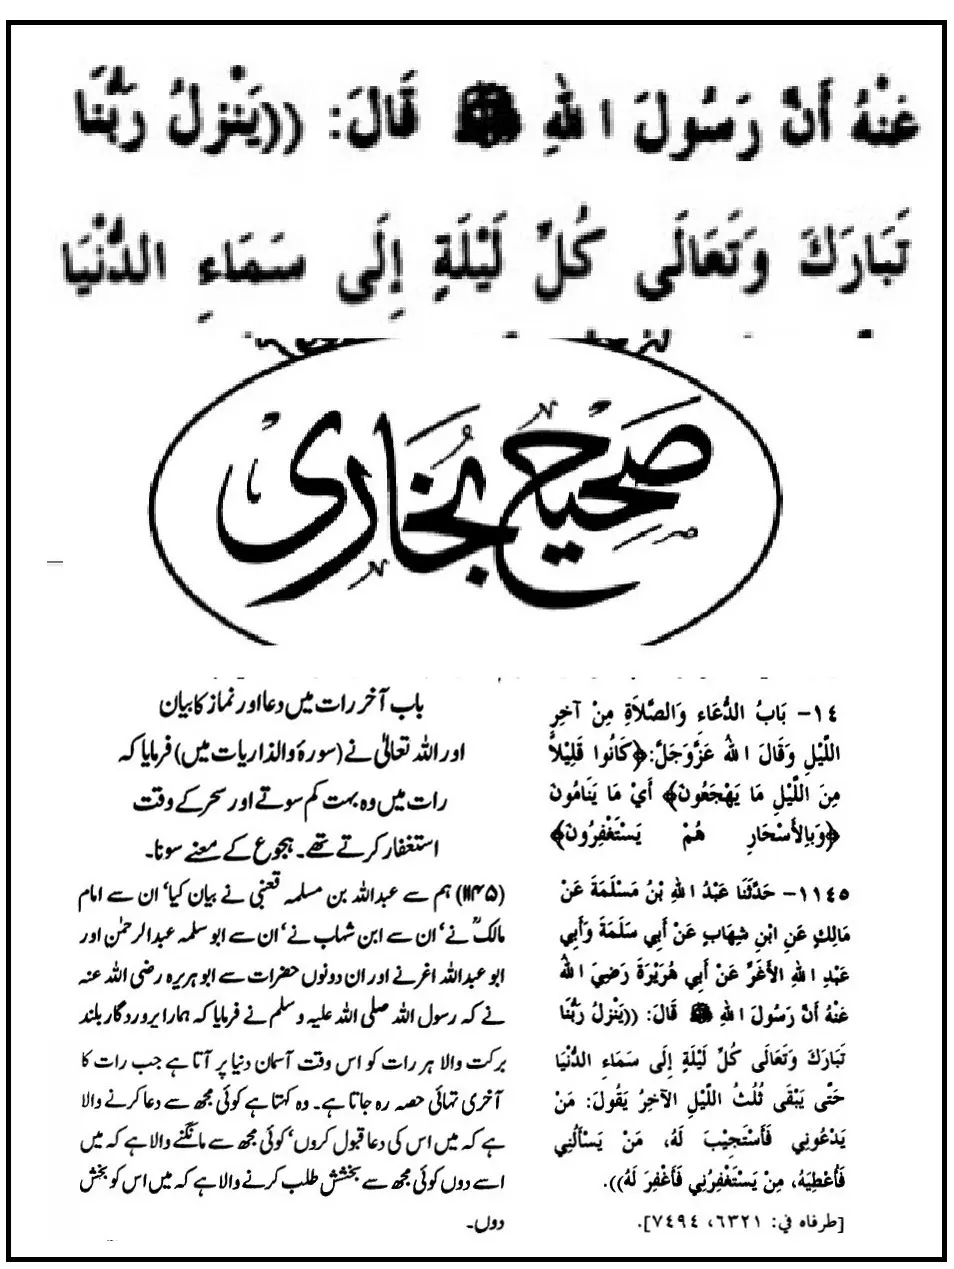 عَنْهُ أَنَّ رَسُولَ اللهِ ﷺ قَالَ: ((يَنْزِلُ رَبُّنَا
تَبَارَكَ وَتَعَالَى كُلَّ لَيْلَةٍ إِلَى سَمَاءِ الدُّنْيَا
صَحِيح بُخَارِى
١٤- بَابُ الدُّعَاءِ وَالصَّلَاةِ مِنْ آخِرِ
اللَّيْلِ وَقَالَ اللهُ عَزَّوَجَلَّ: ﴿كَانُوا قَلِيْلاً
مِنَ اللَّيْلِ مَا يَهْجَعُونَ﴾ أَيْ مَا يَنَامُونَ
﴿وَبِالأَسْحَارِ هُمْ يَسْتَغْفِرُونَ﴾
١١٤٥- حَدَّثَنَا عَبْدُ اللهِ بْنُ مَسْلَمَةَ عَنْ
مَالِكٍ عَنِ ابْنِ شِهَابٍ عَنْ أَبِي سَلَمَةَ وَأَبِي
عَبْدِ اللهِ الأَغَرِّ عَنْ أَبِي هُرَيْرَةَ رَضِيَ اللهُ
عَنْهُ أَنَّ رَسُولَ اللهِ ﷺ قَالَ: ((يَنْزِلُ رَبُّنَا
تَبَارَكَ وَتَعَالَى كُلَّ لَيْلَةٍ إِلَى سَمَاءِ الدُّنْيَا
حَتَّى يَبْقَى ثُلُثُ اللَّيْلِ الآخِرُ يَقُولُ: مَنْ
يَدْعُونِي فَأَسْتَجِيْبَ لَهُ، مَنْ يَسْأَلُنِي
فَأُعْطِيَهُ، مَنْ يَسْتَغْفِرُنِي فَأَغْفِرَ لَهُ)).
[طرفاه في: ٦٣٢١، ٧٤٩٤].
باب آخر رات میں دعا اور نماز کا بیان
اور اللہ تعالیٰ نے (سورۂ والذاریات میں) فرمایا کہ
رات میں وہ بہت کم سوتے اور سحر کے وقت
استغفار کرتے تھے۔ ہجوع کے معنے سونا۔
(۱۱۴۵) ہم سے عبداللہ بن مسلمہ قعنبی نے بیان کیا' ان سے امام
مالکؒ نے' ان سے ابن شہاب نے' ان سے ابو سلمہ عبدالرحمٰن اور
ابو عبداللہ اغر نے اور ان دونوں حضرات سے ابو ہریرہ رضی اللہ عنہ
نے کہ رسول اللہ صلی اللہ علیہ وسلم نے فرمایا کہ ہمارا پروردگار بلند
برکت والا ہر رات کو اس وقت آسمان دنیا پر آتا ہے جب رات کا
آخری تہائی حصہ رہ جاتا ہے۔ وہ کہتا ہے کوئی مجھ سے دعا کرنے والا
ہے کہ میں اس کی دعا قبول کروں' کوئی مجھ سے مانگنے والا ہے کہ میں
اسے دوں کوئی مجھ سے بخشش طلب کرنے والا ہے کہ میں اس کو بخش
دوں۔